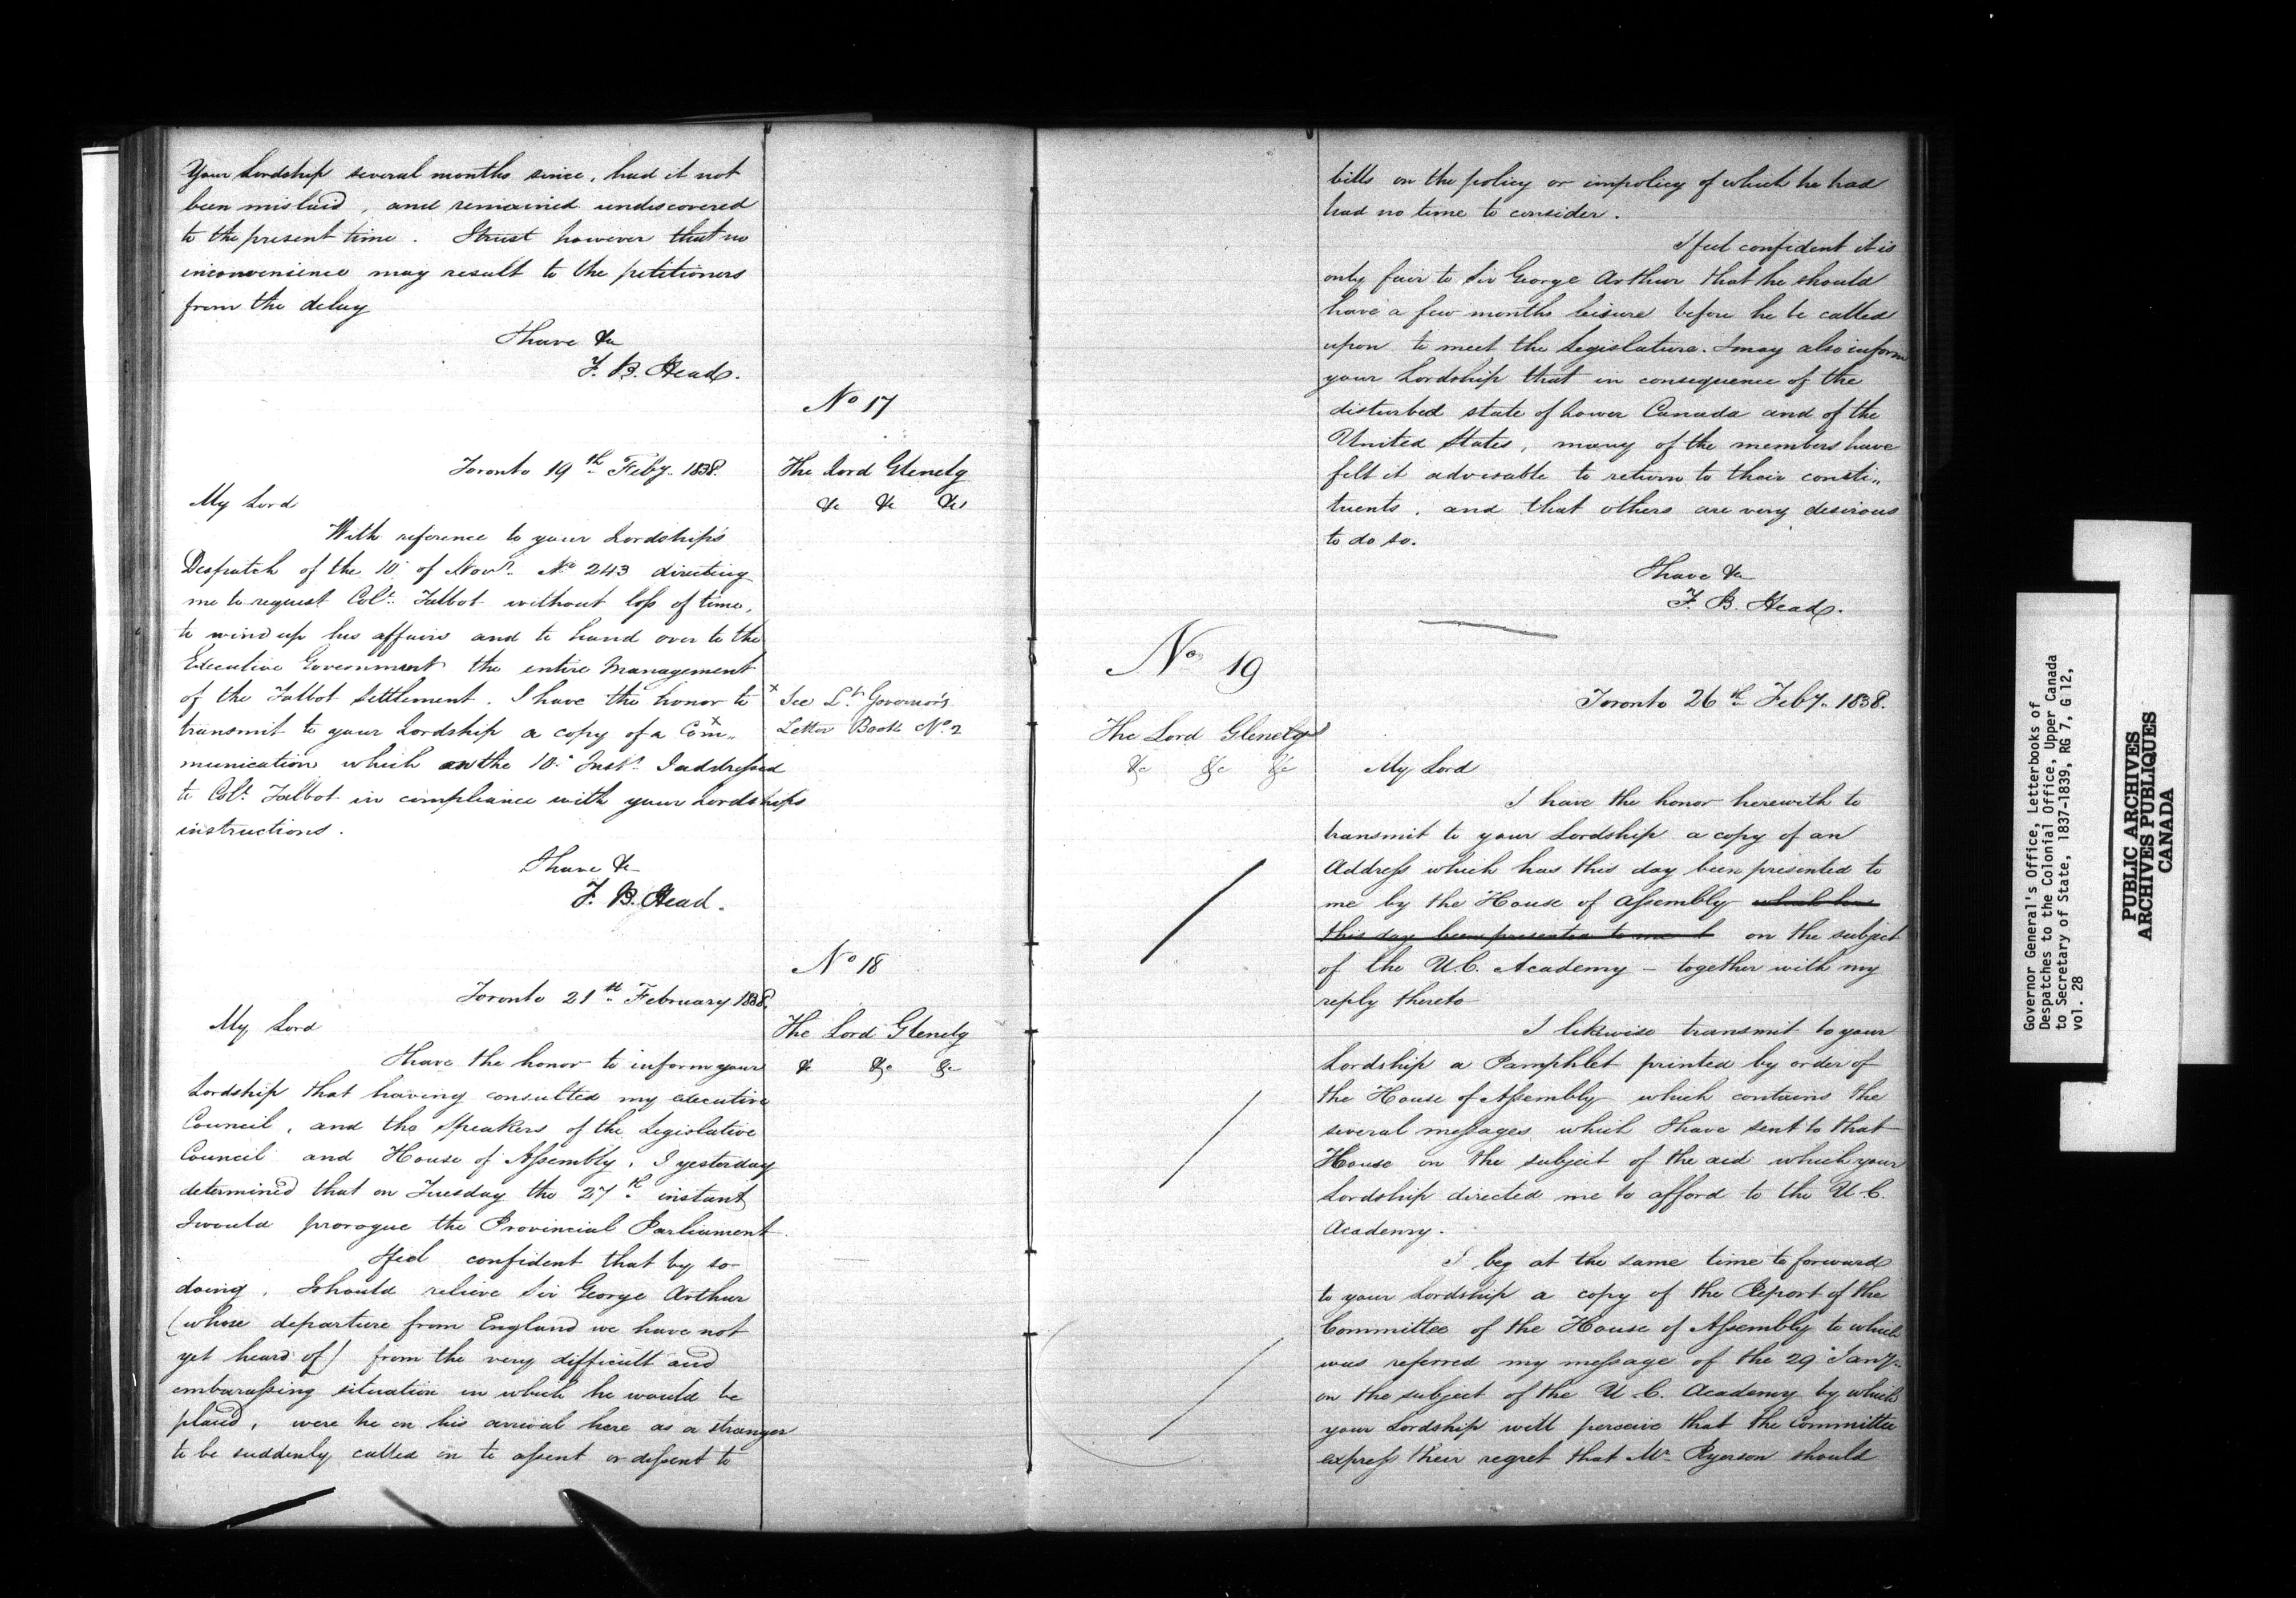 Your Lordship several months since, had it not
been mislaid, and remained undiscovered
to the present time. I trust however that no
inconvenience may result to the petitioners
from the delay
I have &c
F. B. Head.
No 17
Toronto 19th Feby. 1838.
The Lord Glenelg
&c &c &c
My Lord
With reference to your Lordship's
Despatch of the 10 of Novr. No 243 directing
me to request Coll. Talbot without loss of time,
to wind up his affairs and to hand over to the
Executive Government the entire Management
of the Talbot Settlement. I have the honor to
transmit to your Lordship a copy of a Com-
munication which on the 10 Inst. I addressed
to Coll. Talbot in compliance with your Lordships
instructions.
x See Lt. Governor's
Letter Book No. 2
I have &c
F. B. Head.
No 18
Toronto 21st February 1838.
The Lord Glenelg
& &c &c
My Lord
I have the honor to inform your
Lordship that having consulted my executive
Council, and the Speakers of the Legislative
Council and House of Assembly, I yesterday
determined that on Tuesday the 27th instant
I would prorogue the Provincial Parliament.
I feel confident that by so
doing, I should relieve Sir George Arthur
(whose departure from England we have not
yet heard of) from the very difficult and
embarassing situation in which he would be
placed, were he on his arrival here as a stranger
to be suddenly called on to assent or dissent to
bills on the policy or impolicy of which he had
had no time to consider.
I feel confident it is
only fair to Sir George Arthur that he should
have a few months leisure before he be called
upon to meet the Legislature. I may also inform
your Lordship that in consequence of the
disturbed state of Lower Canada and of the
United States, many of the members have
felt it advisable to return to their consti"
tuents, and that others are very desirous
to do so.
I have &c
F. B. Head.
No 19
Toronto 26th Feby. 1838.
The Lord Glenelg
&c &c &c
My Lord
I have the honor herewith to
transmit to your Lordship a copy of an
Address which has this day been presented to
me by the House of Assembly which has
this day been presented to me b on the subject
of the U.C. Academy - together with my
reply thereto
I likewise transmit to your
Lordship a Pamphlet printed by order of
the House of Assembly which contains the
several messages which I have sent to that
House on the subject of the aid which your
Lordship directed me to afford to the U.C.
Academy.
I beg at the same time to forward
to your Lordship a copy of the Report of the
Committee of the House of Assembly to which
was referred my message of the 29 Jany.
on the subject of the U.C. Academy by which
your Lordship will perceive that the Committee
express their regret that Mr. Ryerson should
Governor General's Office, Letterbooks of
Despatches to the Colonial Office, Upper Canada
to Secretary of State, 1837-1839, RG 7, G 12,
vol. 28
PUBLIC ARCHIVES
ARCHIVES PUBLIQUES
CANADA